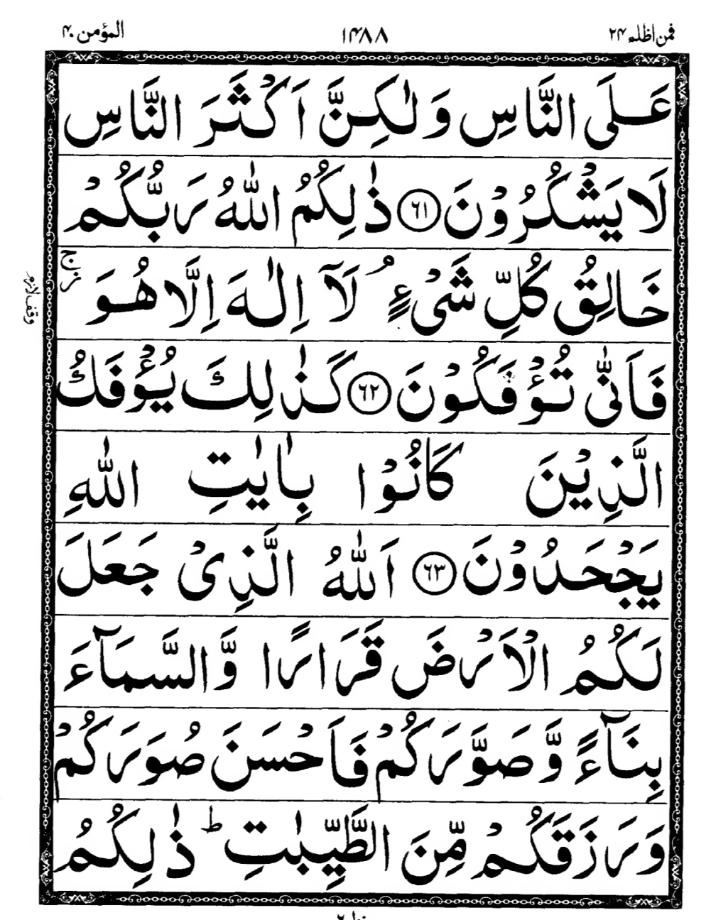 فمن اظلم ٢٤ ١٤٨٨ المؤمن ٤٠
عَلَى النَّاسِ وَلٰكِنَّ اَكْثَرَ النَّاسِ
لَا يَشْكُرُوْنَ ۝٦١ ذٰلِكُمُ اللّٰهُ رَبُّكُمْ
خَالِقُ كُلِّ شَیْءٍ ۘ لَاۤ اِلٰهَ اِلَّا هُوَ ۚز
وقف لازم
فَاَنّٰی تُؤْفَكُوْنَ ۝٦٢ كَذٰلِكَ يُؤْفَكُ
الَّذِيْنَ كَانُوْا بِاٰيٰتِ اللّٰهِ
يَجْحَدُوْنَ ۝٦٣ اَللّٰهُ الَّذِیْ جَعَلَ
لَكُمُ الْاَرْضَ قَرَارًا وَّالسَّمَآءَ
بِنَآءً وَّصَوَّرَكُمْ فَاَحْسَنَ صُوَرَكُمْ
وَرَزَقَكُمْ مِّنَ الطَّيِّبٰتِ ؕ ذٰلِكُمُ